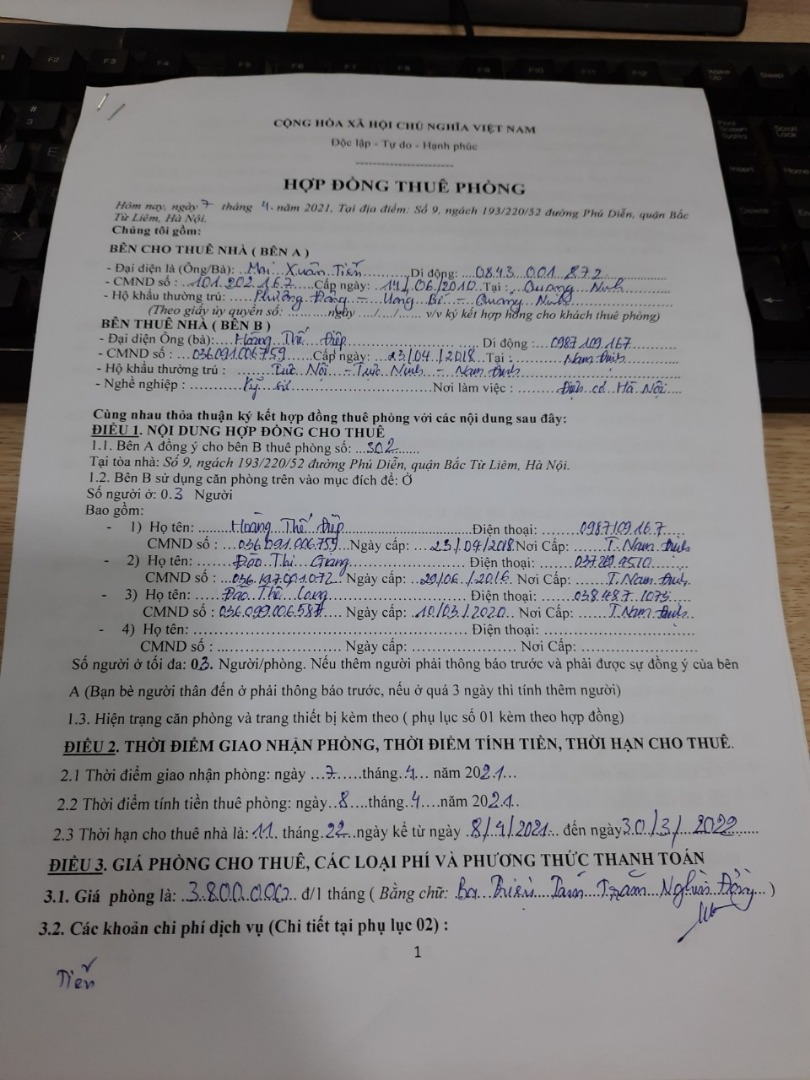 CỘNG HÒA XÃ HỘI CHỦ NGHĨA VIỆT NAM
Độc lập - Tự do - Hạnh phúc
HỢP ĐỒNG THUÊ PHÒNG
Hôm nay, ngày 7 tháng 4 năm 2021, Tại địa điểm: Số 9, ngách 193/220/52 đường Phú Diễn, quận Bắc
Từ Liêm, Hà Nội.
Chúng tôi gồm:
BÊN CHO THUÊ NHÀ ( BÊN A )
- Đại diện là (Ông/Bà): Mai Xuân Tiến Di động: 0843 001 872
- CMND số : 101 202 167 Cấp ngày: 14/06/2010 Tại : Quảng Ninh
- Hộ khẩu thường trú: Phương Đông - Uông Bí - Quảng Ninh
(Theo giấy ủy quyền số: ngày / / v/v ký kết hợp đồng cho khách thuê phòng)
BÊN THUÊ NHÀ ( BÊN B )
- Đại diện Ông (bà): Hoàng Thế Điệp Di động : 0987109167
- CMND số : 036091006759 Cấp ngày: 23/04/2018 Tại : Nam Định
- Hộ khẩu thường trú : Nội - Trực Ninh - Nam Định
- Nghề nghiệp : Kỹ sư Nơi làm việc : Hà Nội
Cùng nhau thỏa thuận ký kết hợp đồng thuê phòng với các nội dung sau đây:
ĐIỀU 1. NỘI DUNG HỢP ĐỒNG CHO THUÊ
1.1. Bên A đồng ý cho bên B thuê phòng số: 302
Tại tòa nhà: Số 9, ngách 193/220/52 đường Phú Diễn, quận Bắc Từ Liêm, Hà Nội.
1.2. Bên B sử dụng căn phòng trên vào mục đích để: Ở
Số người ở: 03 Người
Bao gồm:
- 1) Họ tên: Hoàng Thế Điệp Điện thoại: 0987109167
CMND số : 036091006759 Ngày cấp: 23/04/2018 Nơi Cấp: T. Nam Định
- 2) Họ tên: Đào Thị Giang Điện thoại:
CMND số : 036197001072 Ngày cấp: 29/06/2016 Nơi Cấp: T. Nam Định
- 3) Họ tên: Đào Thế Long Điện thoại: 038.487.1073
CMND số : 036099006587 Ngày cấp: 10/03/2020 Nơi Cấp: T. Nam Định
- 4) Họ tên: Điện thoại:
CMND số : Ngày cấp: Nơi Cấp:
Số người ở tối đa: 03 Người/phòng. Nếu thêm người phải thông báo trước và phải được sự đồng ý của bên
A (Bạn bè người thân đến ở phải thông báo trước, nếu ở quá 3 ngày thì tính thêm người)
1.3. Hiện trạng căn phòng và trang thiết bị kèm theo ( phụ lục số 01 kèm theo hợp đồng)
ĐIỀU 2. THỜI ĐIỂM GIAO NHẬN PHÒNG, THỜI ĐIỂM TÍNH TIỀN, THỜI HẠN CHO THUÊ.
2.1 Thời điểm giao nhận phòng: ngày 7 tháng 4 năm 2021
2.2 Thời điểm tính tiền thuê phòng: ngày 8 tháng 4 năm 2021
2.3 Thời hạn cho thuê nhà là: 11 tháng 22 ngày kể từ ngày 8/4/2021 đến ngày 30/3/2022
ĐIỀU 3. GIÁ PHÒNG CHO THUÊ, CÁC LOẠI PHÍ VÀ PHƯƠNG THỨC THANH TOÁN
3.1. Giá phòng là: 3.800.000 đ/1 tháng ( Bằng chữ: Ba Triệu Tám Trăm Nghìn Đồng )
3.2. Các khoản chi phí dịch vụ (Chi tiết tại phụ lục 02) :
1
Tiến